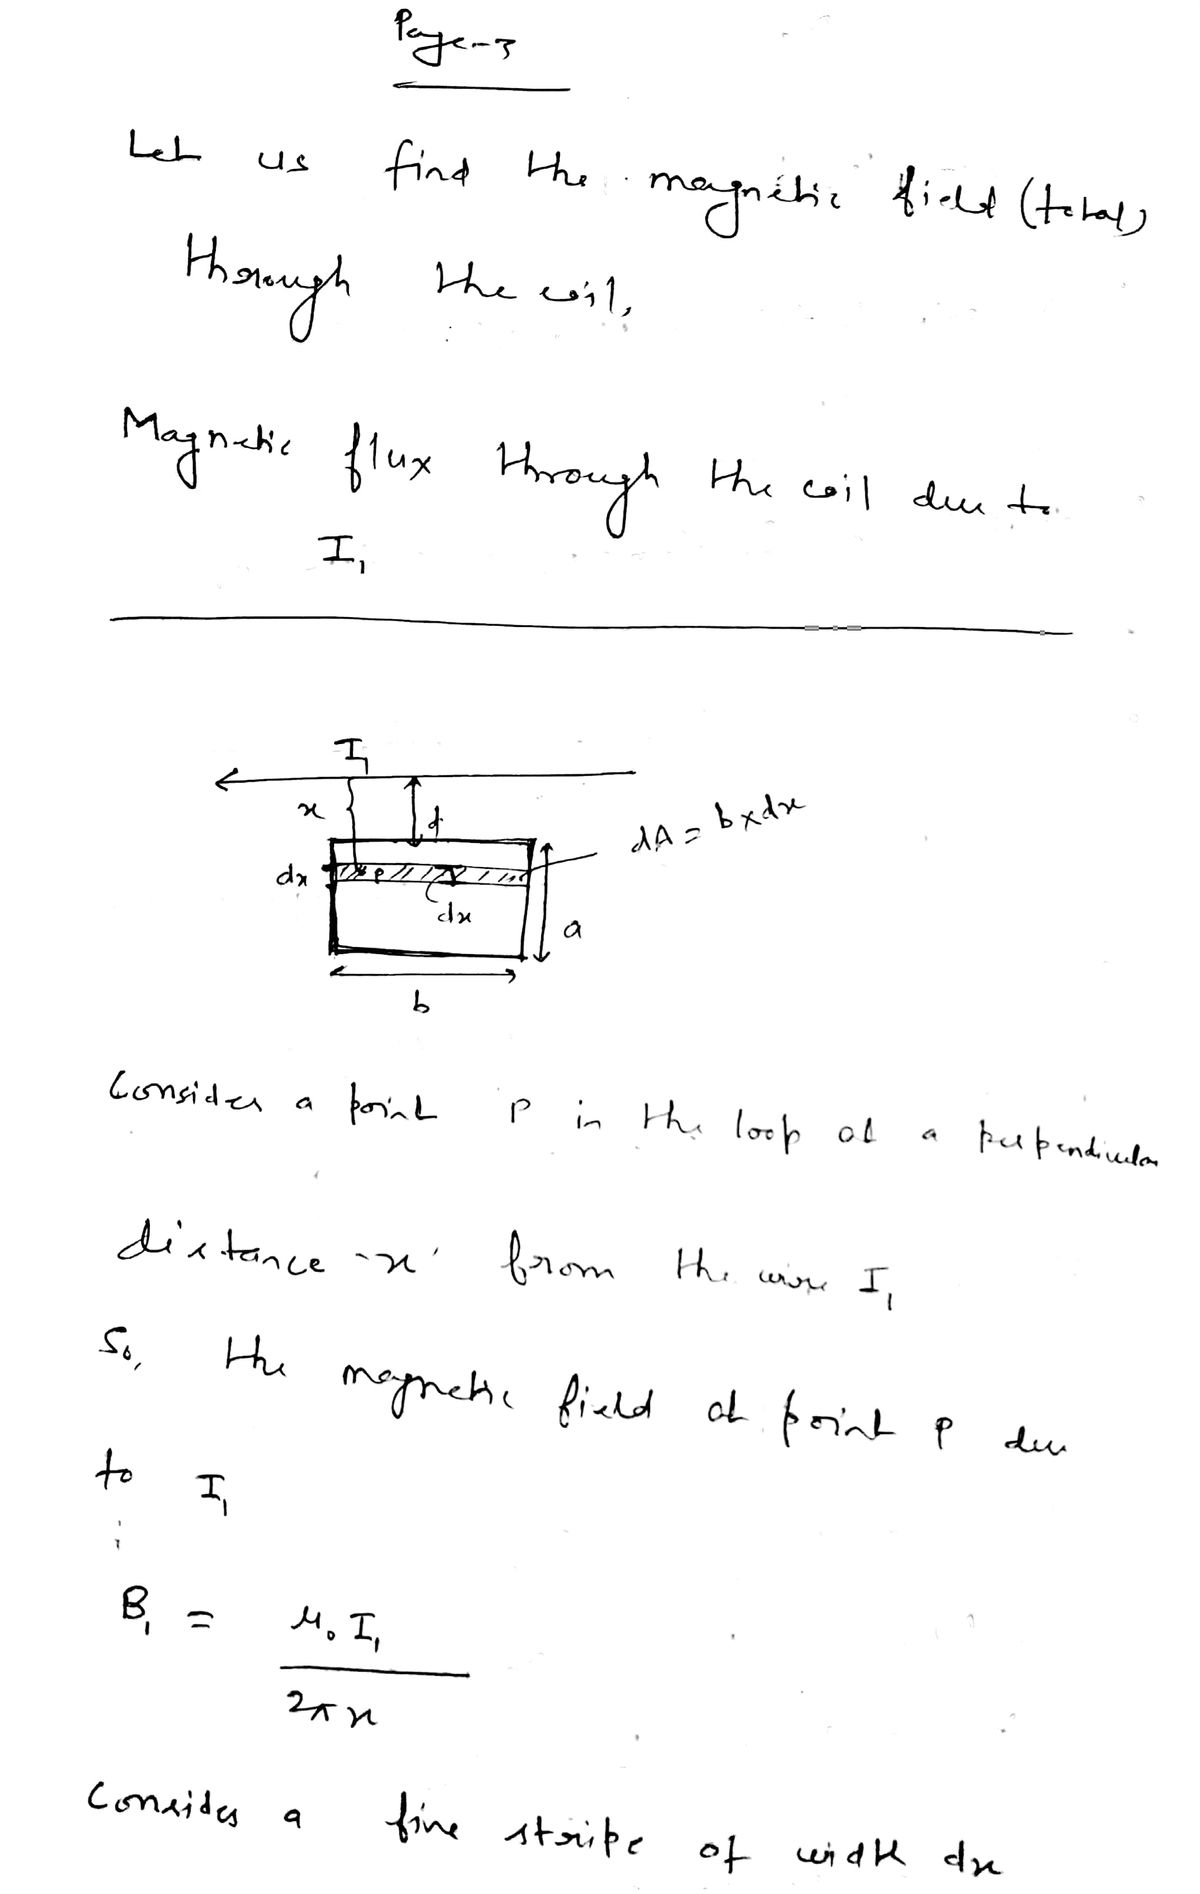 Page-3
Let us find the magnetic field (total)
through the coil,
Magnetic flux through the coil due to
I₁
I₁
x
d
dA = b×dx
dx
P
dx
a
b
Consider a point P in the loop at a perpendicular
distance 'x' from the wire I₁
So, the magnetic field at point P due
to I₁
B₁ = μ₀ I₁
2πx
Consider a fine stripe of width dx